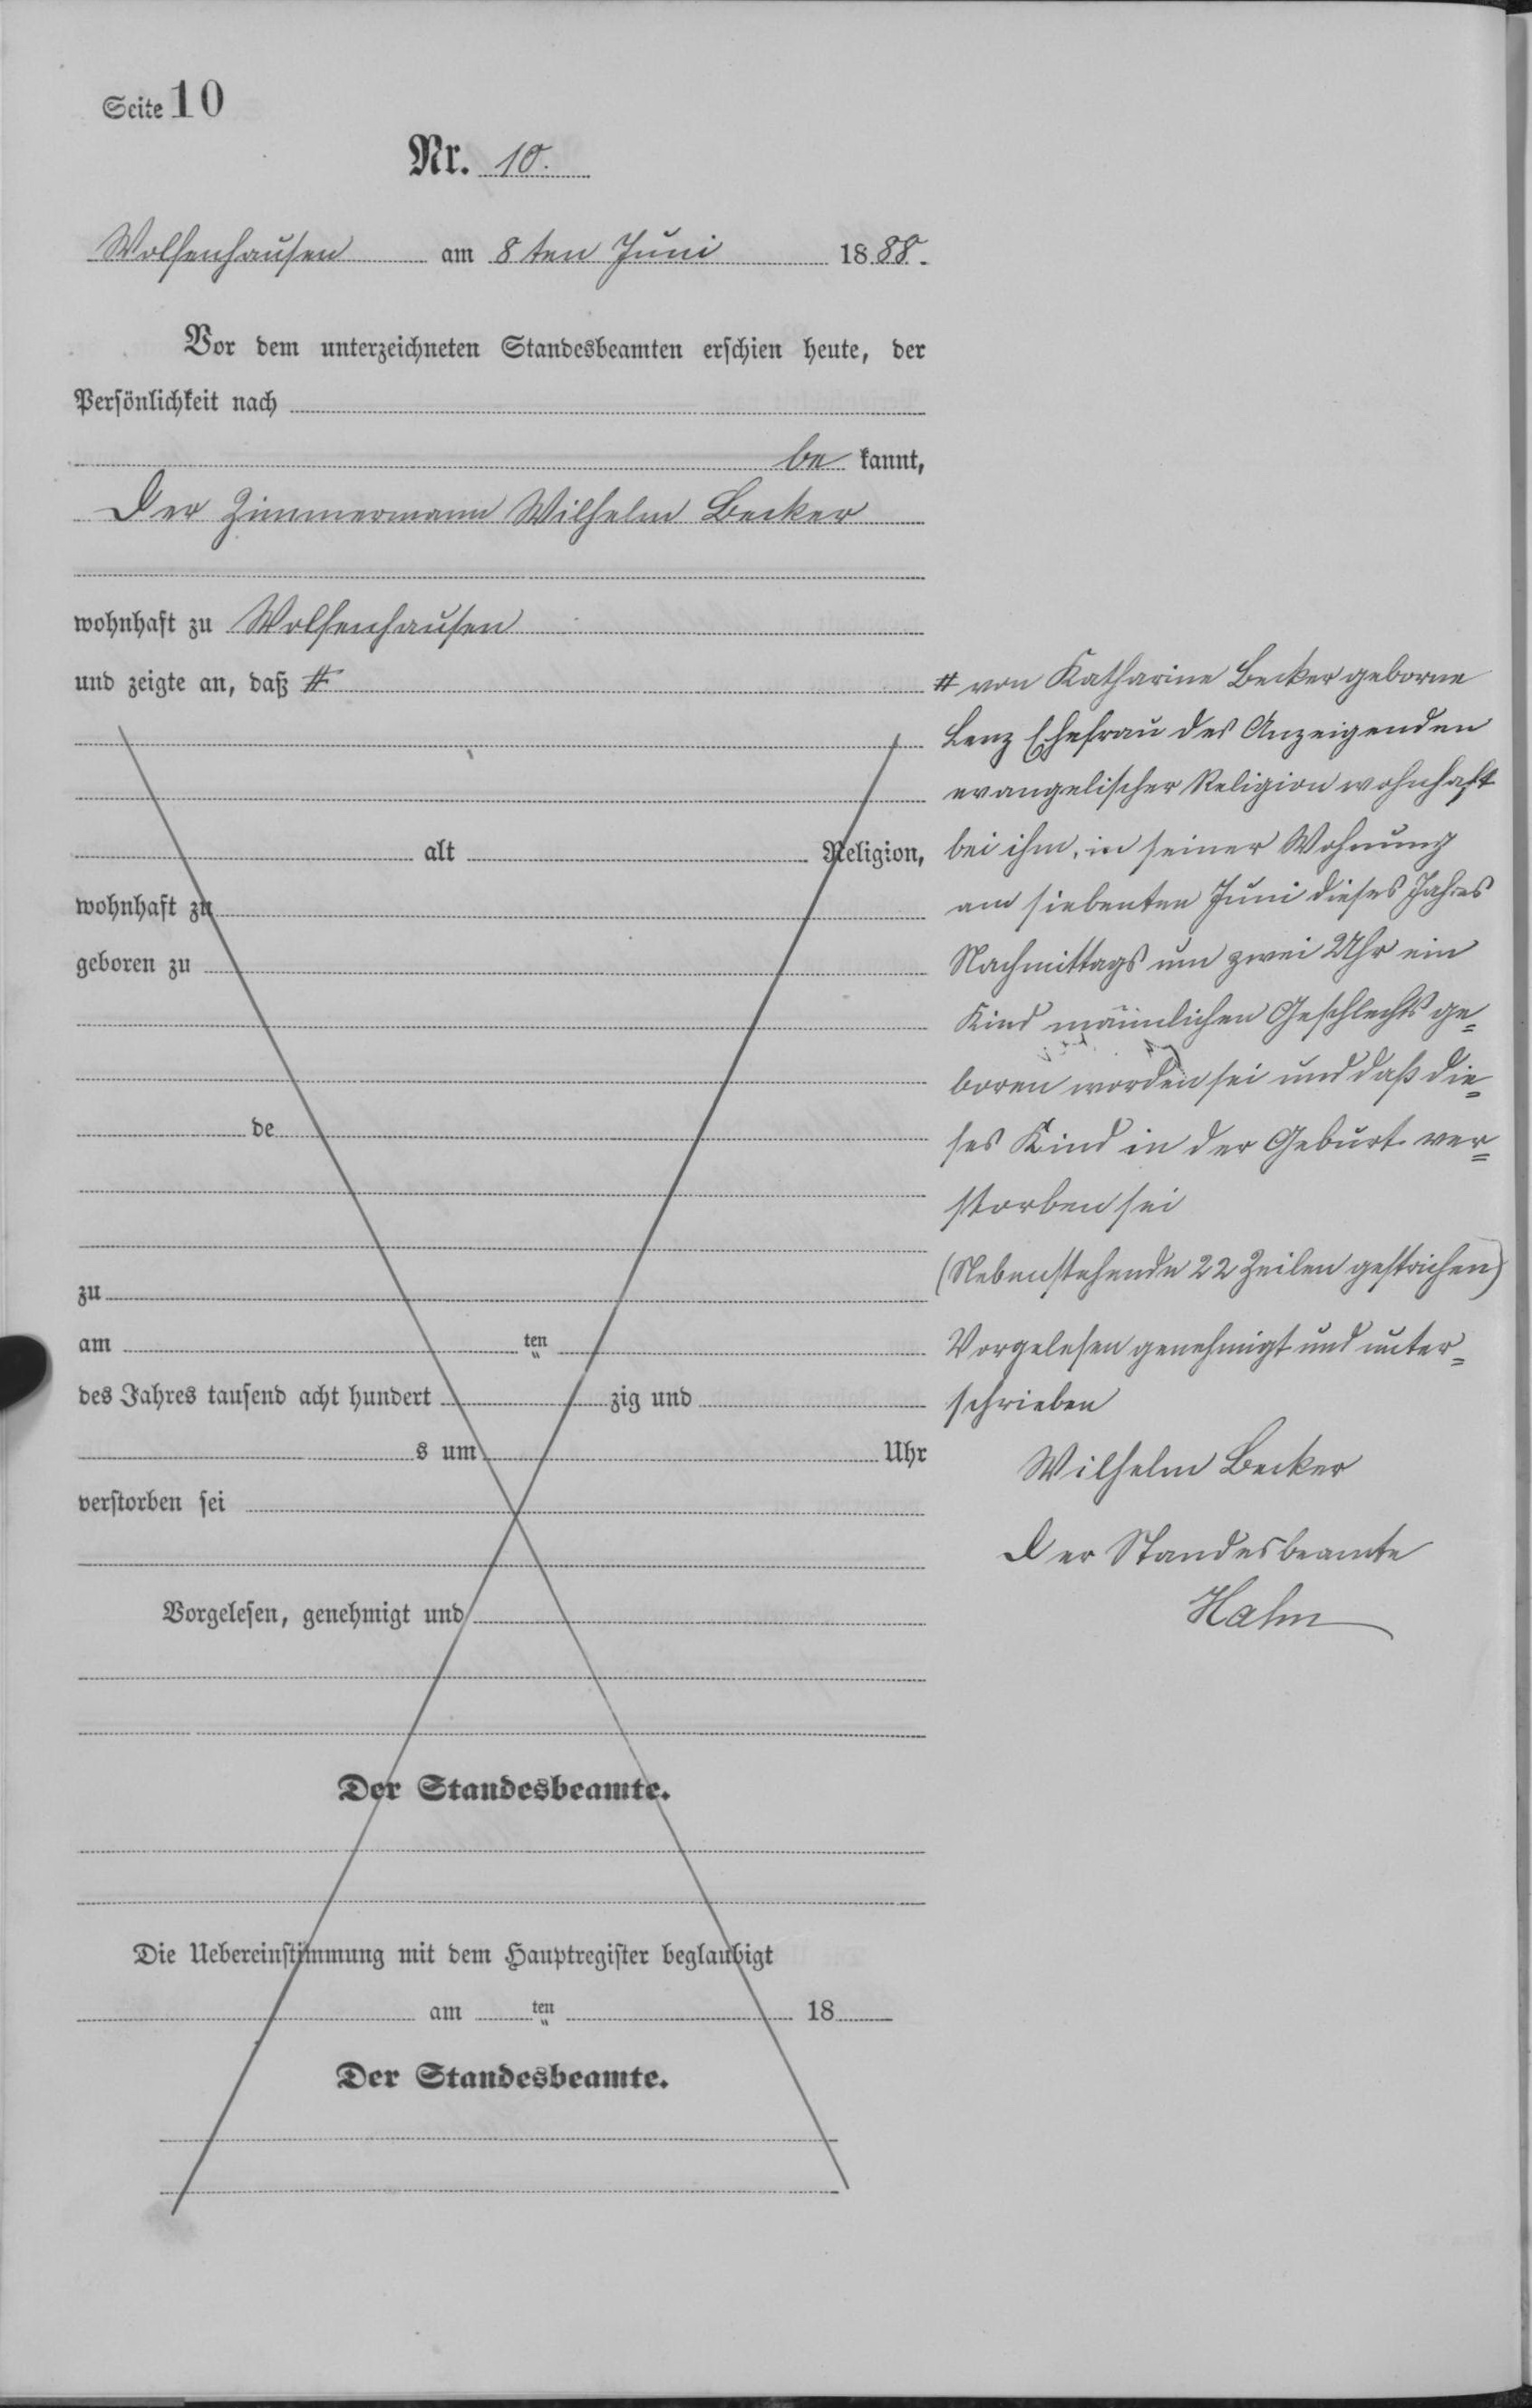 Seite 10
Nr. 10.
Wolfenhausen am 8ten Juni 1888.
Vor dem unterzeichneten Standesbeamten erschien heute, der
Persönlichkeit nach
be kannt,
Der Zimmermann Wilhelm Becker
wohnhaft zu Wolfenhausen
und zeigte an, daß #
alt Religion,
wohnhaft zu
geboren zu
de
zu
am ten
des Jahres tausend acht hundert zig und
s um Uhr
verstorben sei
Vorgelesen, genehmigt und
Der Standesbeamte.
Die Uebereinstimmung mit dem Hauptregister beglaubigt
am ten 18
Der Standesbeamte.
# von Katharine Becker geborne
Lenz Ehefrau des Anzeigenden
evangelischer Religion wohnhaft
bei ihm, in seiner Wohnung
am siebenten Juni dieses Jahres
Nachmittags um zwei Uhr ein
Kind männlichen Geschlechts ge=
boren worden sei und daß die=
ses Kind in der Geburt ver=
storben sei
(Nebenstehende 22 Zeilen gestrichen)
Vorgelesen genehmigt und unter=
schrieben
Wilhelm Becker
Der Standesbeamte
Hahn